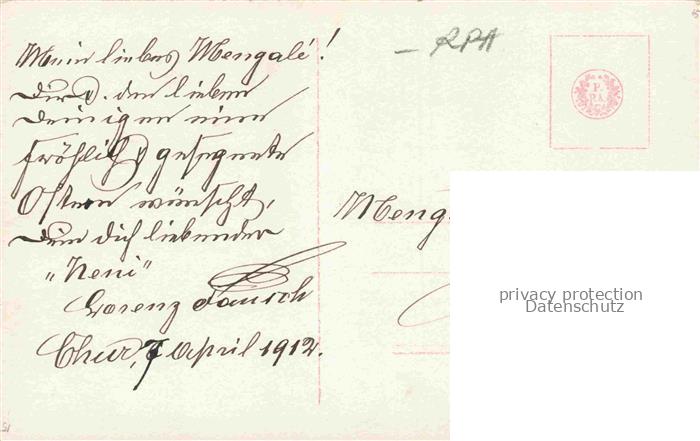 Mein liebes Mengalé!
Dir & den lieben
Deinigen eine
fröhlich & gesegnete
Ostern wünscht,
Dein dich liebender
"Neni"
Lorenz
Chur, 7 April 1912.
RPA
P.
P.A.
Meng
privacy protection
Datenschutz